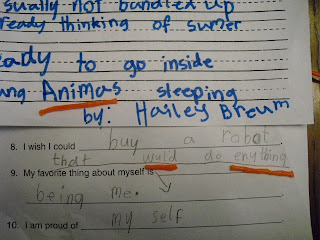 sually not bundled up
ready thinking of sumer
eady to go inside
ang Animas sleeping
by: Hailey Breum
8. I wish I could buy a robot
that wuld do enything
9. My favorite thing about myself is
being me.
10. I am proud of my self